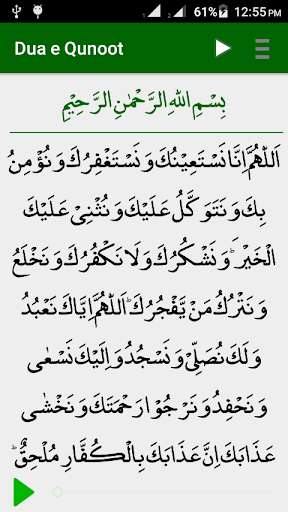 61% 12:55 PM
Dua e Qunoot
بِسْمِ اللهِ الرَّحْمٰنِ الرَّحِيْمِ
اَللّٰهُمَّ اِنَّا نَسْتَعِيْنُكَ وَ نَسْتَغْفِرُكَ وَ نُؤْمِنُ
بِكَ وَ نَتَوَكَّلُ عَلَيْكَ وَ نُثْنِىْ عَلَيْكَ
الْخَيْرَ ؕ وَ نَشْكُرُكَ وَلَا نَكْفُرُكَ وَ نَخْلَعُ
وَ نَتْرُكُ مَنْ يَّفْجُرُكَ ؕ اَللّٰهُمَّ اِيَّاكَ نَعْبُدُ
وَ لَكَ نُصَلِّىْ وَ نَسْجُدُ وَ اِلَيْكَ نَسْعٰى
وَ نَحْفِدُ وَ نَرْجُوْا رَحْمَتَكَ وَ نَخْشٰى
عَذَابَكَ اِنَّ عَذَابَكَ بِالْكُفَّارِ مُلْحِقٌ ؕ